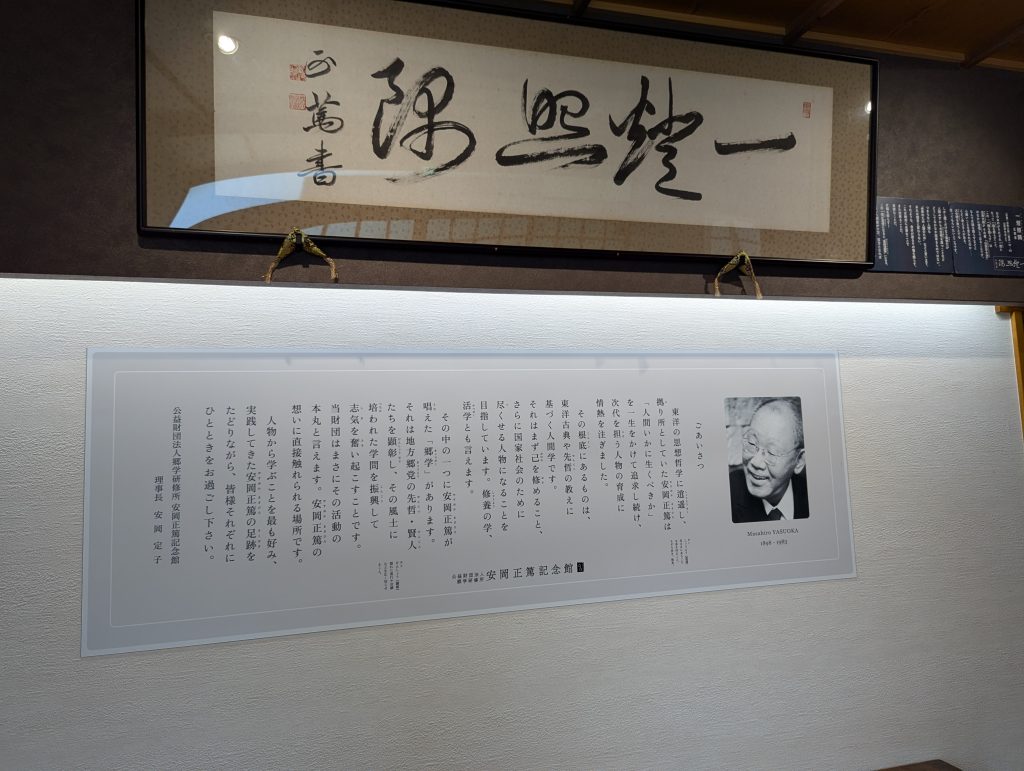 一燈照隅
正篤書
ごあいさつ
東洋の思想哲学に し、
拠り所としていた安岡正篤は
「人間いかに生くべきか」
を一生をかけて追求し続け、
次代を担う人物の育成に
情熱を注ぎました。
その根底にあるものは、
東洋古典や先哲の教えに
基づく人間学です。
それはまず己を修めること、
さらに国家社会のために
尽くせる人物になることを
目指しています。修養の学、
活学とも言えます。
その中の一つに安岡正篤が
唱えた「郷学」があります。
それは地方郷党の先哲・賢人
たちを顕彰し、その風土に
培われた学問を振興して
志気を奮い起こすことです。
当財団はまさにその活動の
本丸と言えます。安岡正篤の
想いに直接触れられる場所です。
人物から学ぶことを最も好み、
実践してきた安岡正篤の足跡を
たどりながら、皆様それぞれに
ひとときをお過ごし下さい。
公益財団法人郷学研修所 安岡正篤記念館
理事長 安岡定子
Masahiro YASUOKA
1898 - 1983
安岡正篤記念館